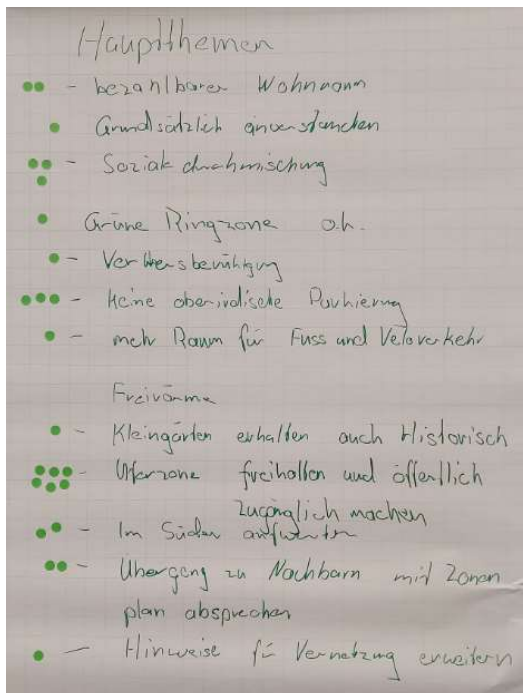 Hauptthemen
- bezahlbarer Wohnraum
Grundsätzlich einverstanden
- Soziale durchmischung
Grüne Ringzone o.k.
- Verkehrsberuhigung
- Keine oberirdische Parkierung
- mehr Raum für Fuss und Veloverkehr
Freiräume
- Kleingärten erhalten auch Historisch
- Uferzone freihalten und öffentlich
zugänglich machen
- Im Süden aufwerten
- Übergang zu Nachbarn mit Zonen
plan absprechen
- Hinweise für Vernetzung erweitern